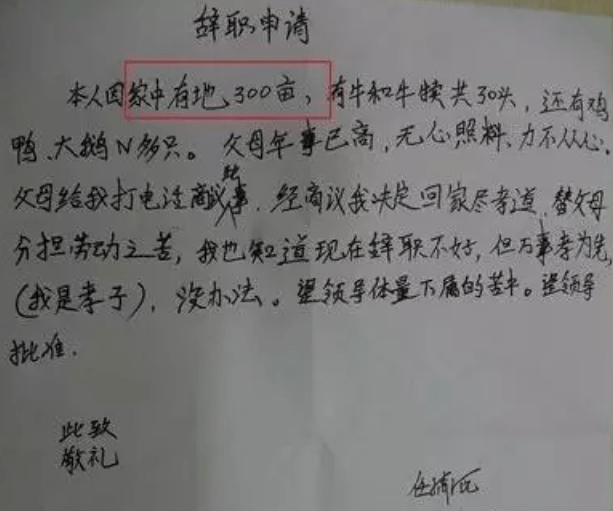 辞职申请
本人因家中有地300亩，有牛和牛犊共30头，还有鸡
鸭、大鹅N多只。父母年事已高，无心照料、力不从心，
父母给我打电话商议此事，经商议我决定回家尽孝道，替父母
分担劳动之苦，我也知道现在辞职不好，但万事孝为先，
(我是孝子)，没办法。望领导体量下属的苦中。望领导
批准.
此致
敬礼